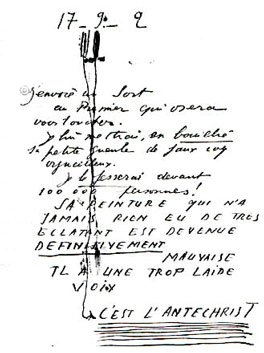 17_ 9_ 2
J'envoie un Sort
au Premier qui osera
vous toucher.
Je lui mettrai, en bouillie
sa petite gueule de faux coq
orgueilleux.
Je le fesserai devant
100 000 personnes!
SA PEINTURE QUI N'A
JAMAIS RIEN EU DE TRES
ECLATANT EST DEVENUE
DEFINITIVEMENT
MAUVAISE
IL A UNE TROP LAIDE
VOIX
C'EST L'ANTECHRIST